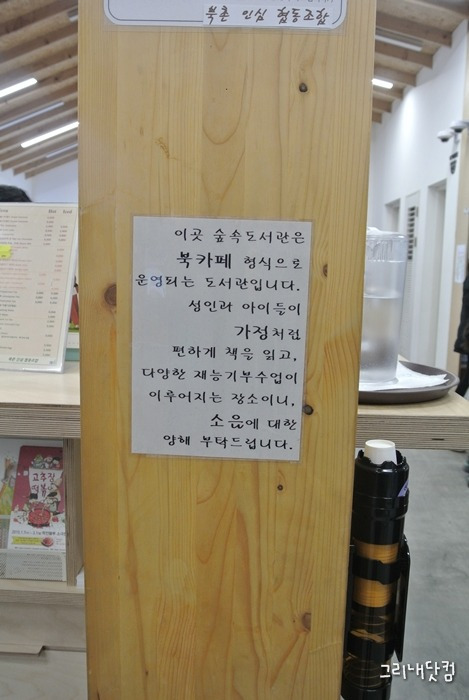 북촌 인심 협동조합
이곳 숲속도서관은
북카페 형식으로
운영되는 도서관입니다.
성인과 아이들이
가정처럼
편하게 책을 읽고,
다양한 재능기부수업이
이루어지는 장소이니,
소음에 대한
양해 부탁드립니다.
고추장
떡볶이
그리내닷컴